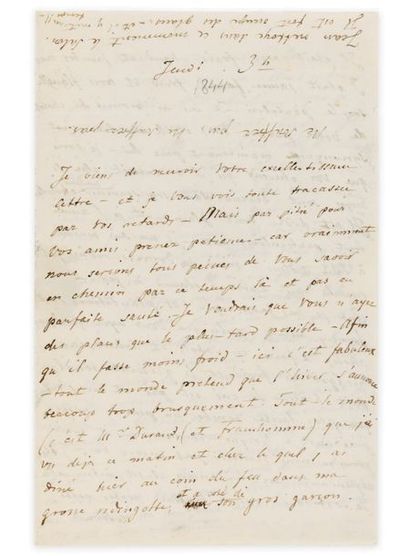 Il est fort occupé des glaces - et il y
Jean nettoye dans ce le salon.
Jeudi. 3h
1844
Ne souffrez pas - Ne souffrez pas -
Je viens de recevoir votre excellentissime
lettre - et je vous vois toute tracassée
par vos retards - Mais par pitié pour
vos amis prenez patience - car vraiment
nous serions tous peinés de vous savoir
en chemin par ce temps là et pas en
parfaite santé - Je voudrais que vous n'ayez
des places que le plus-tard possible - Afin
qu'il fasse moins froid - ici c'est fabuleux
- tout le monde pretend que l'hiver s'annonce
beaucoup trop brusquement. Tout-le monde
(c'est Mr Durand, (et Franchomme) que j'ai
vu déja ce matin et chez le quel j'ai
diné hier au coin du feu dans ma
grosse redingotte, et a coté de son gros garçon.